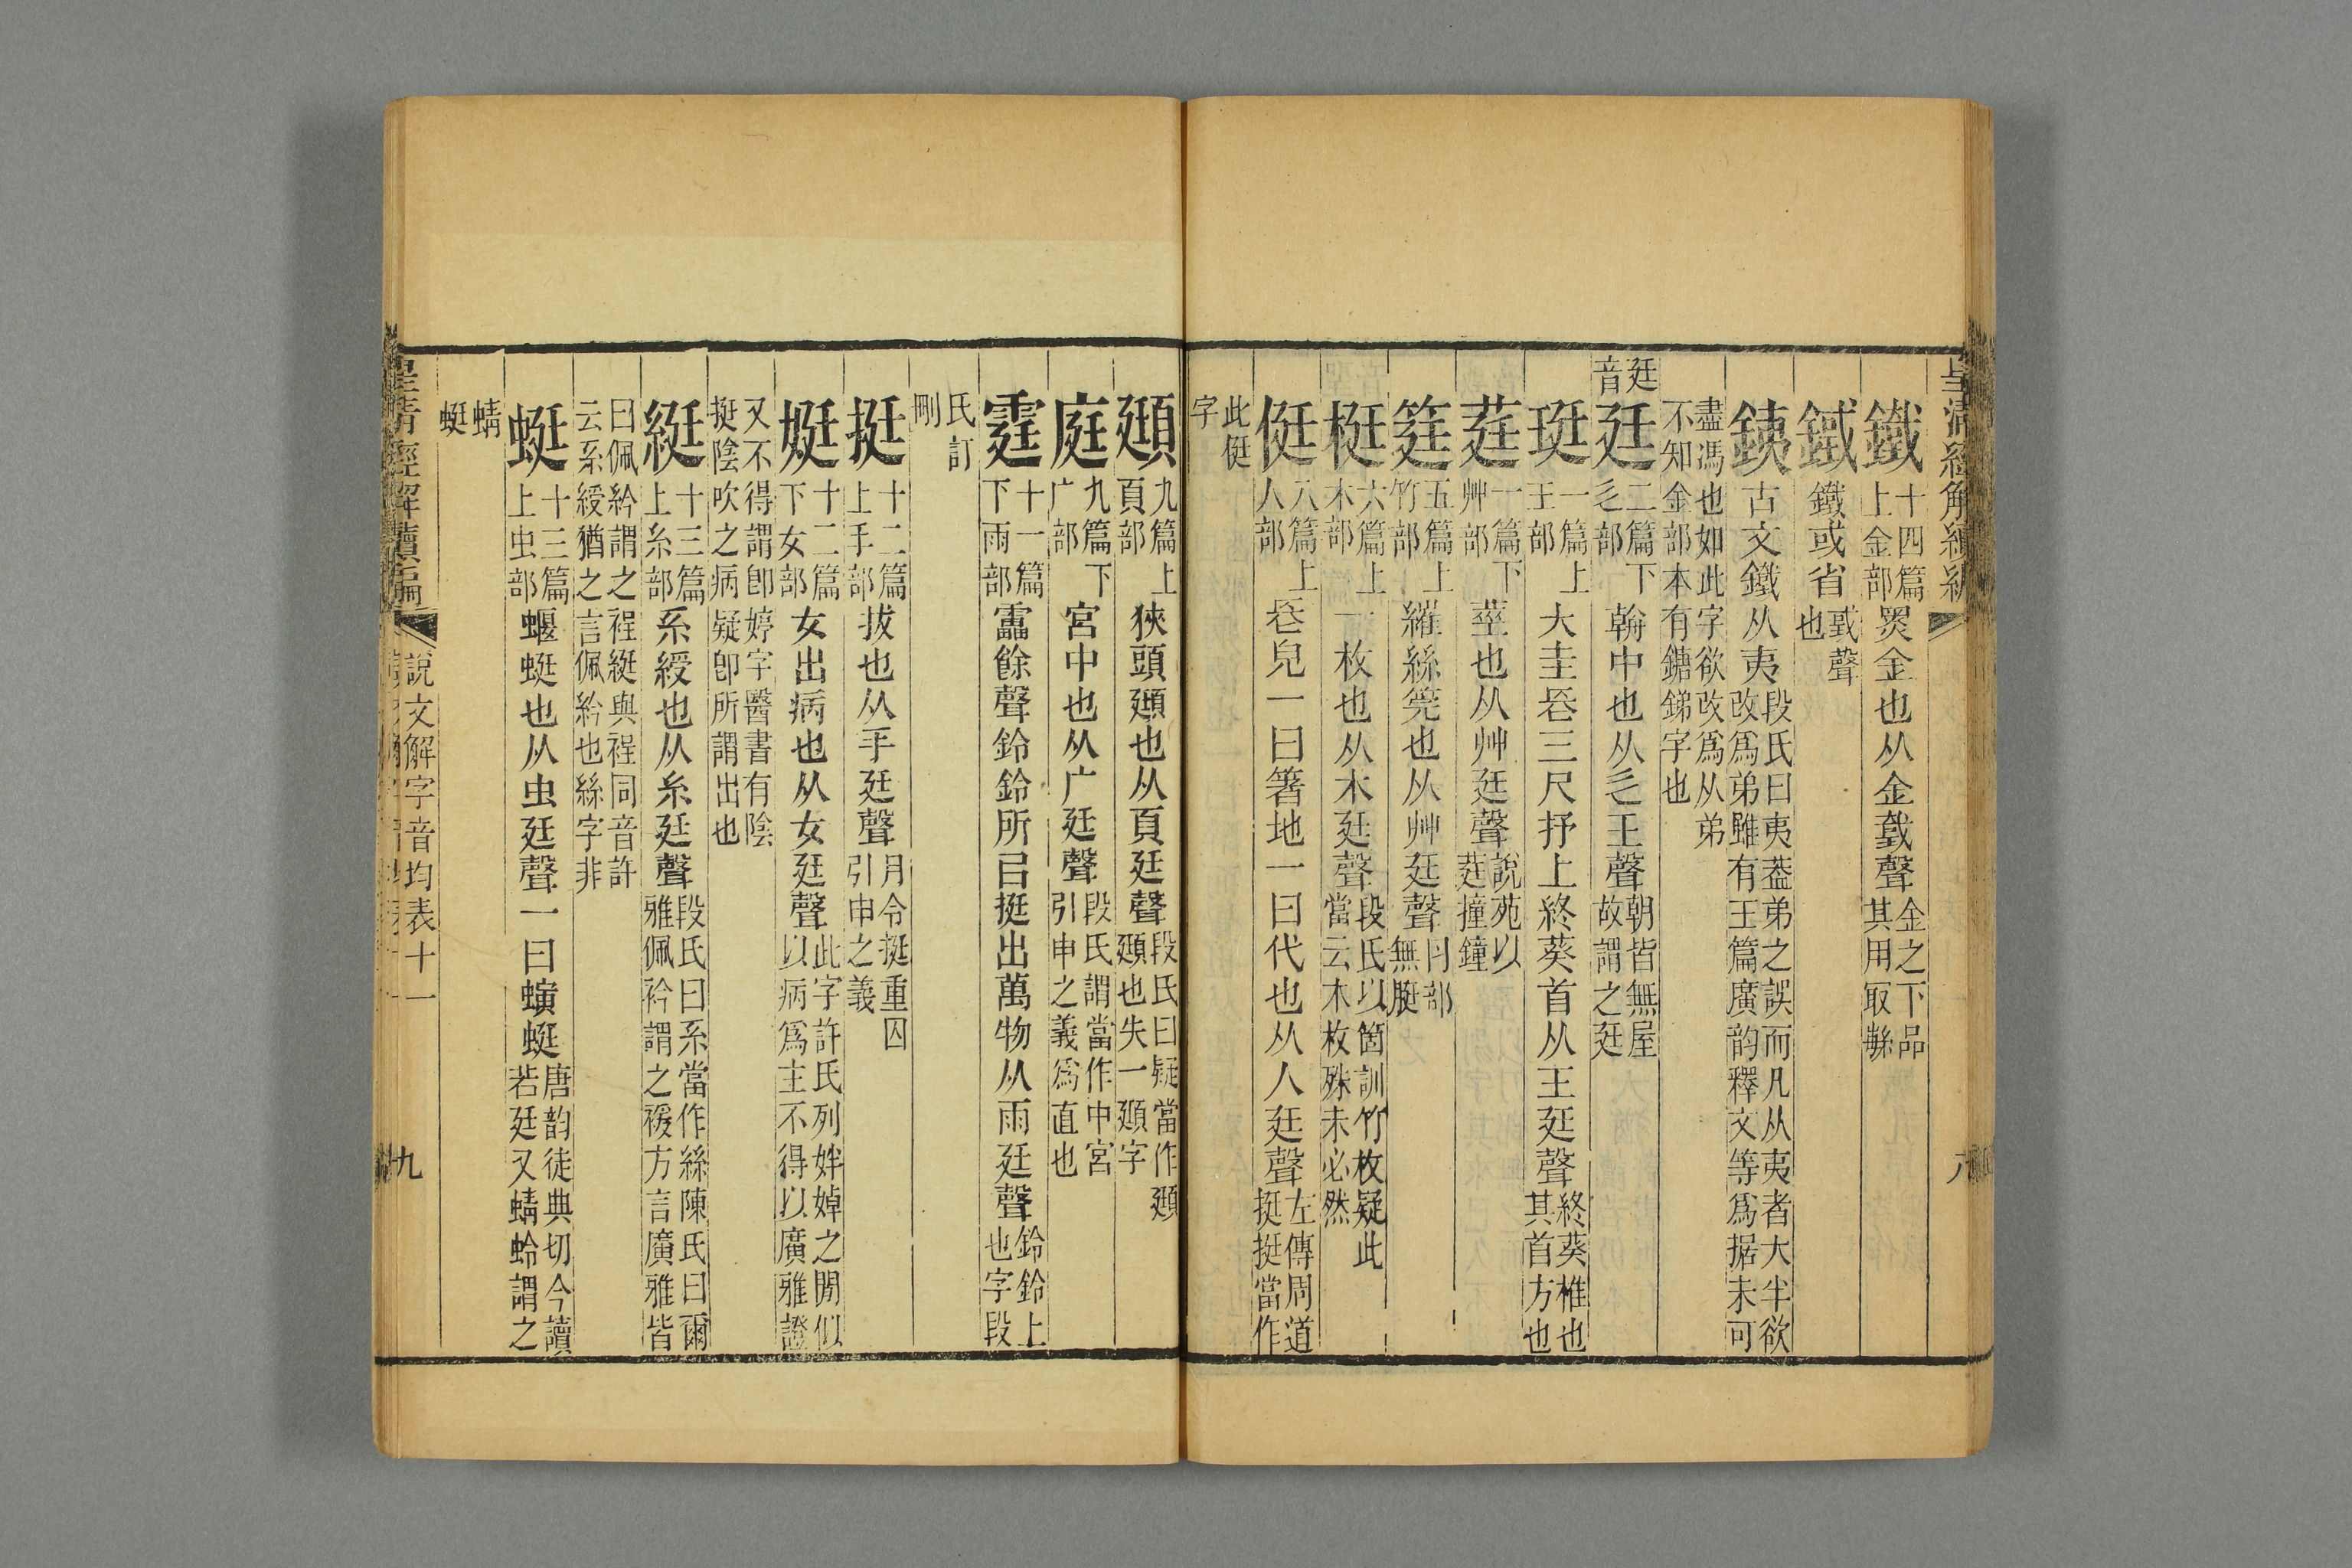 皇清經解續編
八
鐵十四篇上金部㒼金也从金𢧜聲金之下品其用冣緐
鐵鐵或省𢧜聲也
銕古文鐵从夷段氏曰夷葢弟之誤而凡从夷者大半欲改爲弟雖有玉篇廣韵釋文等爲据未可
盡馮也如此字欲改爲从弟不知金部本有鎕銻字也
廷音
廷二篇下廴部朝中也从廴𡈼聲朝皆無屋故謂之廷
珽一篇上玉部大圭長三尺抒上終葵首从玉廷聲終葵椎也其首方也
莛一篇下艸部莖也从艸廷聲說苑以莛撞鐘
筳五篇上竹部維絲筦也从艸廷聲月部無脡
梃六篇上木部一枚也从木廷聲段氏以箇訓竹枚疑此當云木枚殊未必然
侹八篇上人部長皃一曰箸地一曰代也从人廷聲左傳周道挺挺當作
此侹字
頲九篇上頁部狹頭頲也从頁廷聲段氏曰疑當作頲頲也失一頲字
庭九篇下广部宮中也从广廷聲段氏謂當作中宮引申之義爲直也
霆十一篇下雨部靁餘聲鈴鈴所㠯挺出萬物从雨廷聲鈴鈴上也字段
氏訂刪
挺十二篇上手部拔也从手廷聲月令挺重囚引申之義
娗十二篇下女部女出病也从女廷聲此字許氏列姅婥之閒似以病爲主不得以廣雅證
又不得謂卽婷字醫書有陰挺陰吹之病疑卽所謂出也
綎十三篇上糸部系綬也从糸廷聲段氏曰系當作絲陳氏曰爾雅佩衿謂之褑方言廣雅皆
曰佩紟謂之裎綎與裎同音許云系綬猶之言佩紟也絲字非
蜓十三篇上虫部蝘蜓也从虫廷聲一曰螾蜓唐韵徒典切今讀若廷又蜻蛉謂之
蜻蜓
皇清經解續編
說文解字音均表十一
九